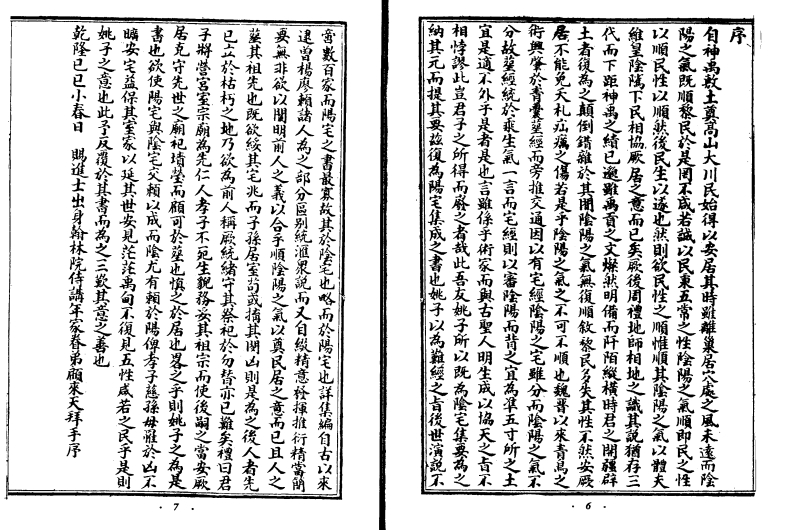 序
自神禹敷土奠高山大川民始得以安居其時雖離巢居穴處之風未遠而陰
陽之氣既順黎民於是罔不咸若誠以民秉五常之性陰陽之氣順即民之性
以順民性以順然後民生以遂也然則欲民性之順惟順其陰陽之氣以體天
維皇陰隲下民相協厥居之意而已矣厥後周禮地師相地之識其說猶存三
代而下距神禹之績已邈雖禹貢之文燦然明備而阡陌縱橫時君之開疆辟
土者復為之顛倒錯雜於其間陰陽之氣無復順敘黎民多失其性不然安厥
居不能免夭札疝癘之傷若是乎陰陽之氣之不可不順也魏晉以來青烏之
術興肇於青囊葬經而旁推交通因以有宅經陰陽之宅雖分而陰陽之氣不
分故葬經統於乘生氣一言而宅經則以審陰陽而背之宜為準五寸所之土
宜是適不外乎是者是也言雖係乎術家而與古聖人明生成以協天之旨不
相悖謬此豈君子之所得而廢之者哉此吾友姚子所以既為陰宅集要為之
納其元而提其要茲復為陽宅集成之書也姚子以為難經之旨後世演說不
· 6 ·
啻數百家而陽宅之書最寡故其於陰宅也略而於陽宅也詳集編自古以來
逮曾楊廖賴諸人為之部分區別統滙眾說而又自綴精意發揮推衍精當簡
要無非欲以闡明前人之義以合乎順陰陽之氣以奠民居之意而已且人之
葬其祖先也既欲綏其宅兆而子孫居室苟或搆其閒凶則是為之後人者先
已立於枯朽之地乃欲為前人稱厥統緒守其祭祀於勿替亦已難矣禮曰君
子將營宮室宗廟為先仁人孝子不死生貌務妥其祖宗而使後嗣之當安厥
居克守先世之廟祀墳塋而顧可於葬也慎之於居也畧之乎則姚子之為是
書也欲使陽宅與陰宅交賴以成而陰尤有賴於陽俾孝子慈孫毋罹於凶不
曠安宅益保其室家以延其世安見茫茫禹甸不復見五性咸若之民乎是則
姚子之意也此予反覆於其書而為之三歎其意之善也
乾隆己巳小春日 賜進士出身翰林院侍講年家眷弟顧來天拜手序
· 7 ·